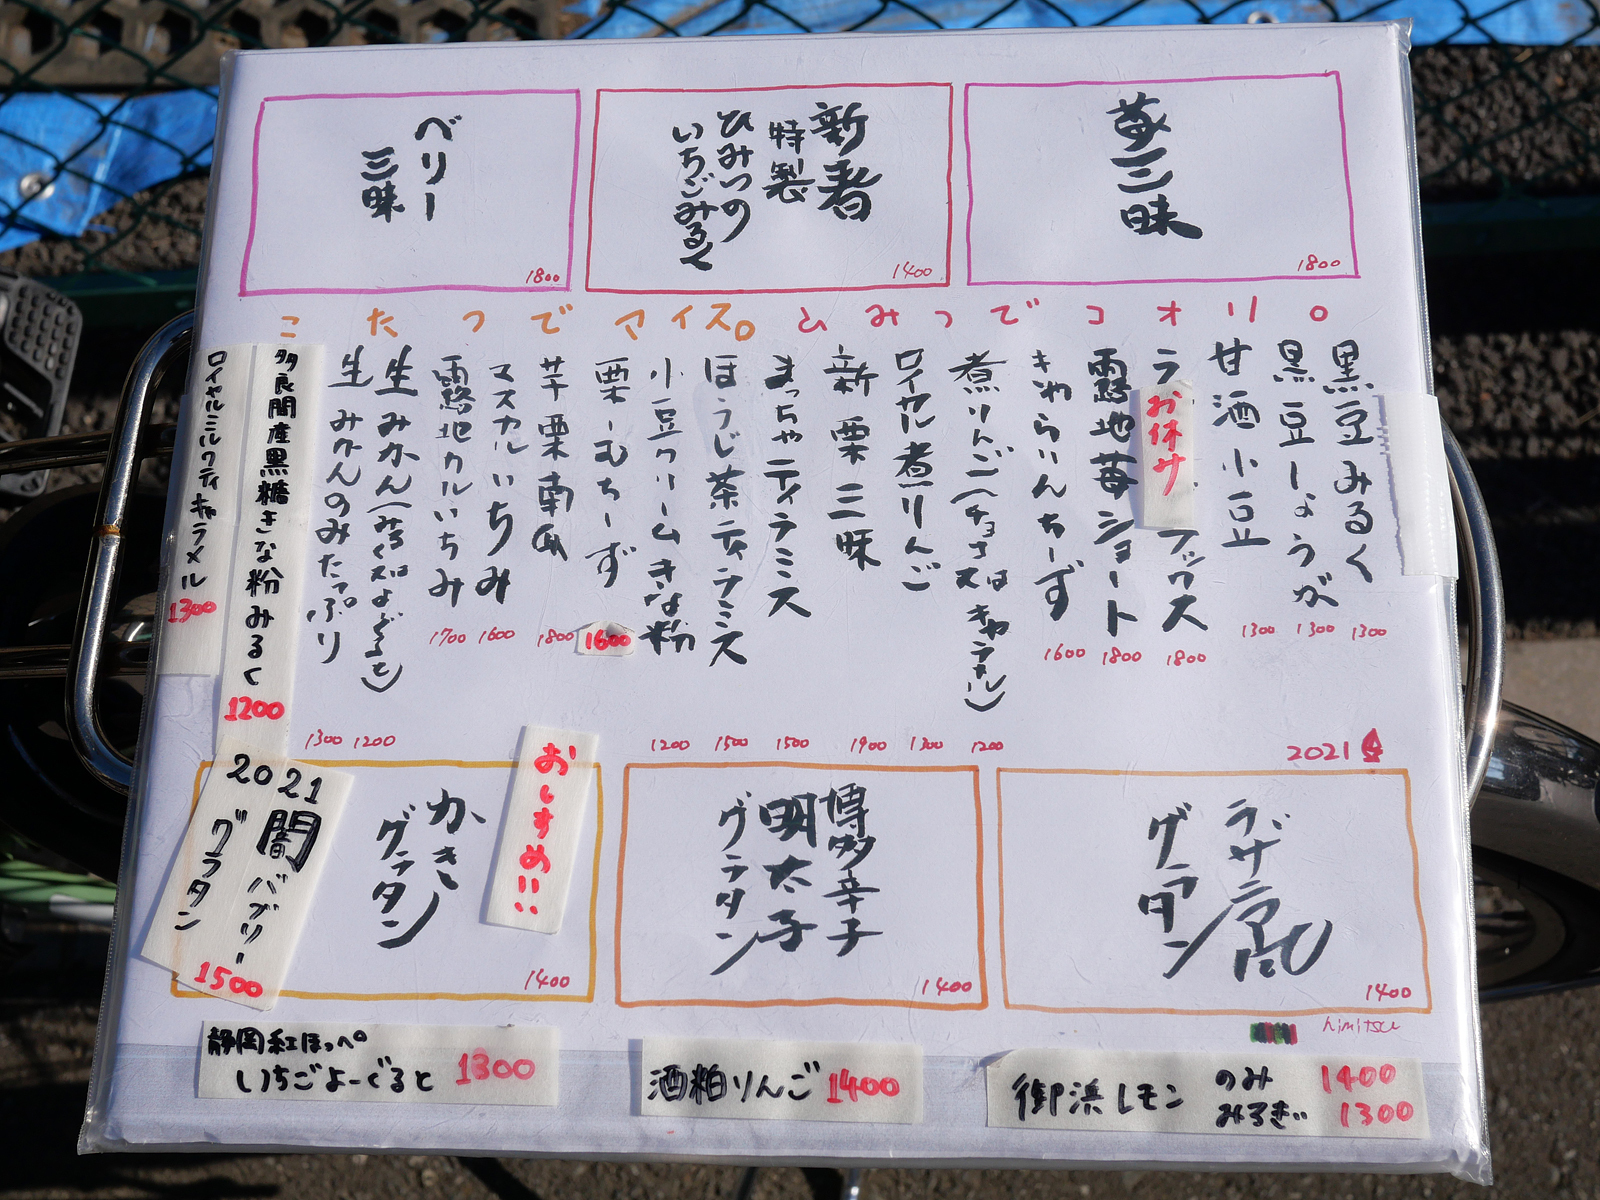 苺三昧
1800
新春
特製
ひみつの
いちごみるく
1400
ベリー
三昧
1800
こたつでアイス。ひみつでコオリ。
黒豆みるく
1300
黒豆しょうが
1300
甘酒小豆
1300
ラ
お休サ
フックス
1800
露地苺ショート
1800
きゃらりんちーず
1600
煮りんご(チョコ又はキャラメル)
1200
ロイヤル煮りんご
1300
新栗三昧
1900
まっちゃティラミス
1500
ほうじ茶ティラミス
1500
小豆クリームきな粉
1200
栗ーむちーず
1600
芋栗南瓜
1800
マスカルいちみ
1600
露地クルいちみ
1700
生みかん(みるく又はよーぐると)
1200
生みかんのみたっぷり
1300
多良間産黒糖きな粉みるく
1200
ロイヤルミルクティキャラメル
1300
2021
ラザニア風
グラタン
1400
博多辛子
明太子
グラタン
1400
おしすめい!!
かき
グラタン
1400
2021
闇バブリー
グラタン
1500
himitsu
静岡紅ほっぺ
いちごよーぐると 1300
酒粕りんご 1400
御浜レモン
のみ 1400
みるぎぃ 1300